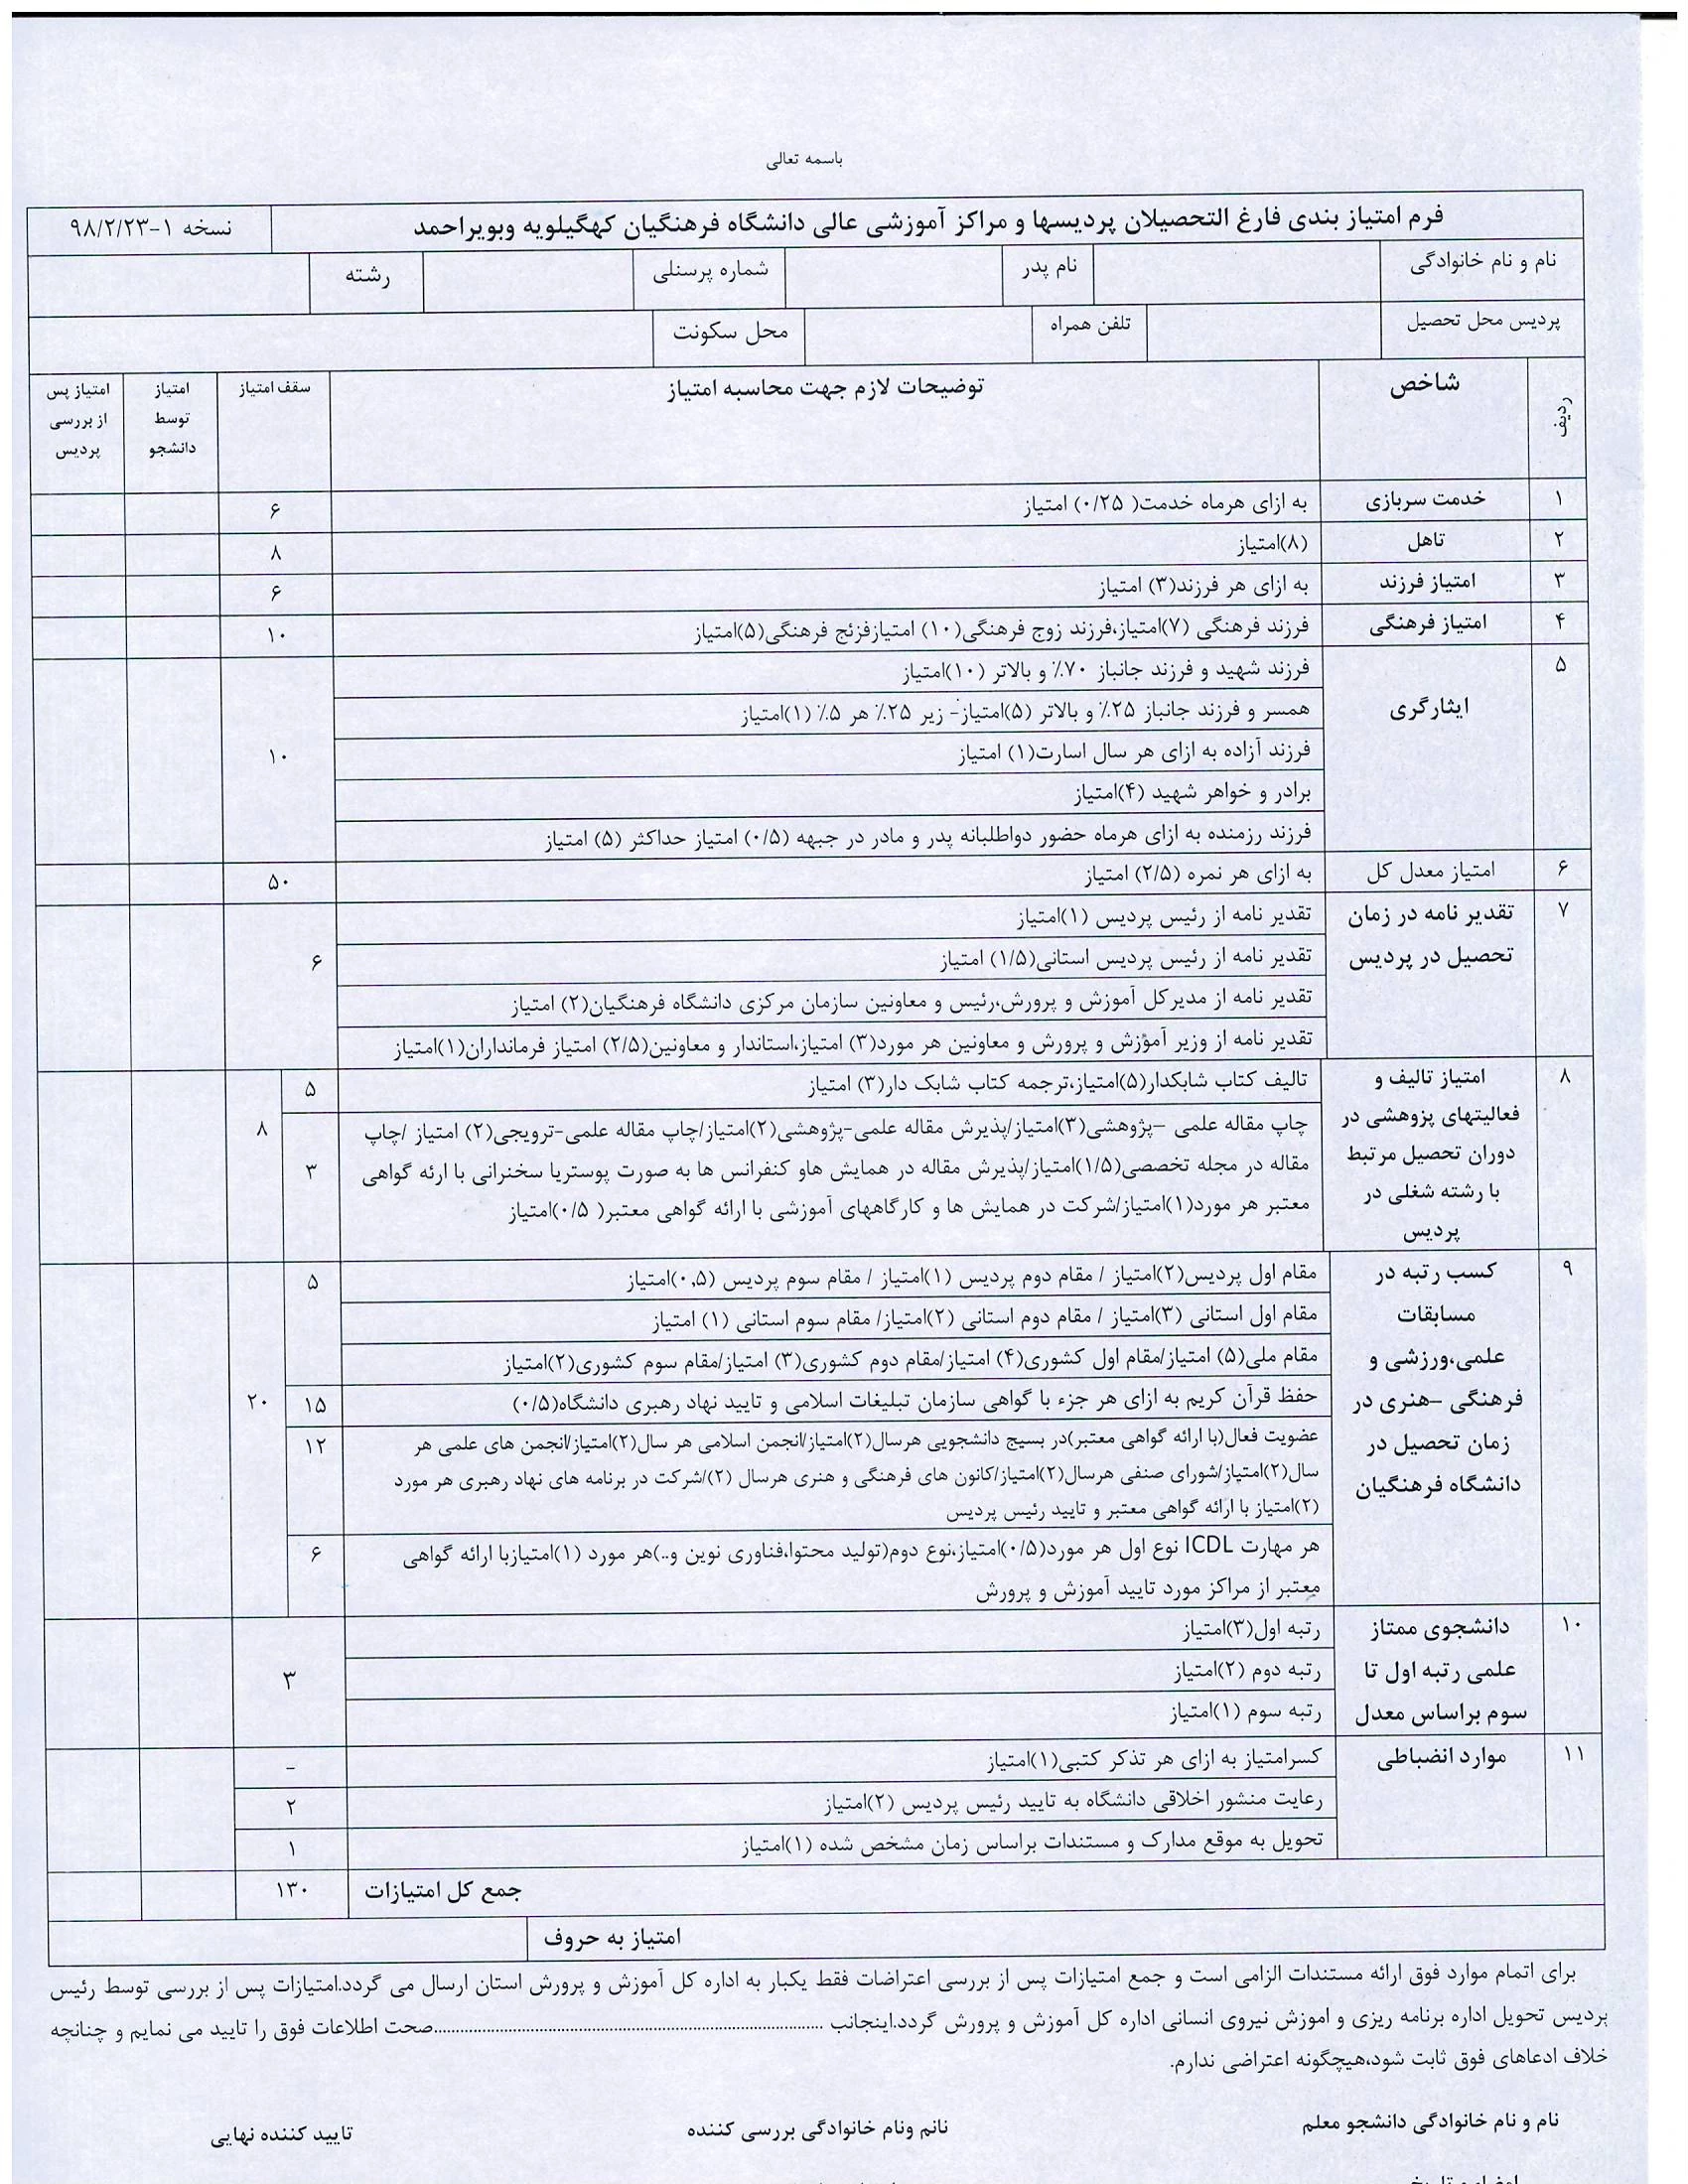 باسمه تعالی
فرم امتیاز بندی فارغ التحصیلان پردیسها و مراکز آموزشی عالی دانشگاه فرهنگیان کهگیلویه وبویراحمد
نسخه ۱-۹۸/۲/۲۳
نام و نام خانوادگی
نام پدر
شماره پرسنلی
رشته
پردیس محل تحصیل
تلفن همراه
محل سکونت
ردیف
شاخص
توضیحات لازم جهت محاسبه امتیاز
سقف امتیاز
امتیاز
توسط
دانشجو
امتیاز پس
از بررسی
پردیس
۱
خدمت سربازی
به ازای هرماه خدمت( ۰/۲۵) امتیاز
۶
۲
تاهل
(۸)امتیاز
۸
۳
امتیاز فرزند
به ازای هر فرزند(۳) امتیاز
۶
۴
امتیاز فرهنگی
فرزند فرهنگی (۷)امتیاز،فرزند زوج فرهنگی(۱۰) امتیازفزئج فرهنگی(۵)امتیاز
۱۰
۵
ایثارگری
فرزند شهید و فرزند جانباز ۷۰٪ و بالاتر (۱۰)امتیاز
همسر و فرزند جانباز ۲۵٪ و بالاتر (۵)امتیاز- زیر ۲۵٪ هر ۵٪ (۱)امتیاز
فرزند آزاده به ازای هر سال اسارت(۱) امتیاز
برادر و خواهر شهید (۴)امتیاز
فرزند رزمنده به ازای هرماه حضور دواطلبانه پدر و مادر در جبهه (۰/۵) امتیاز حداکثر (۵) امتیاز
۱۰
۶
امتیاز معدل کل
به ازای هر نمره (۲/۵) امتیاز
۵۰
۷
تقدیر نامه در زمان
تحصیل در پردیس
تقدیر نامه از رئیس پردیس (۱)امتیاز
تقدیر نامه از رئیس پردیس استانی(۱/۵) امتیاز
تقدیر نامه از مدیرکل آموزش و پرورش،رئیس و معاونین سازمان مرکزی دانشگاه فرهنگیان(۲) امتیاز
تقدیر نامه از وزیر آمؤزش و پرورش و معاونین هر مورد(۳) امتیاز،استاندار و معاونین(۲/۵) امتیاز فرمانداران(۱)امتیاز
۶
۸
امتیاز تالیف و
فعالیتهای پزوهشی در
دوران تحصیل مرتبط
با رشته شغلی در
پردیس
تالیف کتاب شابکدار(۵)امتیاز،ترجمه کتاب شابک دار(۳) امتیاز
۵
چاپ مقاله علمی –پژوهشی(۳)امتیاز/پذیرش مقاله علمی-پژوهشی(۲)امتیاز/چاپ مقاله علمی-ترویجی(۲) امتیاز /چاپ
مقاله در مجله تخصصی(۱/۵)امتیاز/پذیرش مقاله در همایش هاو کنفرانس ها به صورت پوستریا سخنرانی با ارئه گواهی
معتبر هر مورد(۱)امتیاز/شرکت در همایش ها و کارگاههای آموزشی با ارائه گواهی معتبر( ۰/۵)امتیاز
۳
۸
۹
کسب رتبه در
مسابقات
علمی،ورزشی و
فرهنگی –هنری در
زمان تحصیل در
دانشگاه فرهنگیان
مقام اول پردیس(۲)امتیاز / مقام دوم پردیس (۱)امتیاز / مقام سوم پردیس (۰,۵)امتیاز
مقام اول استانی (۳)امتیاز / مقام دوم استانی (۲)امتیاز/ مقام سوم استانی (۱) امتیاز
مقام ملی(۵) امتیاز/مقام اول کشوری(۴) امتیاز/مقام دوم کشوری(۳) امتیاز/مقام سوم کشوری(۲)امتیاز
۵
حفظ قرآن کریم به ازای هر جزء با گواهی سازمان تبلیغات اسلامی و تایید نهاد رهبری دانشگاه(۰/۵)
۱۵
عضویت فعال(با ارائه گواهی معتبر)در بسیج دانشجویی هرسال(۲)امتیاز/انجمن اسلامی هر سال(۲)امتیاز/انجمن های علمی هر
سال(۲)امتیاز/شورای صنفی هرسال(۲)امتیاز/کانون های فرهنگی و هنری هرسال (۲)/شرکت در برنامه های نهاد رهبری هر مورد
(۲)امتیاز با ارائه گواهی معتبر و تایید رئیس پردیس
۱۲
هر مهارت ICDL نوع اول هر مورد(۰/۵)امتیاز،نوع دوم(تولید محتوا،فناوری نوین و..)هر مورد (۱)امتیازبا ارائه گواهی
معتبر از مراکز مورد تایید آموزش و پرورش
۶
۲۰
۱۰
دانشجوی ممتاز
علمی رتبه اول تا
سوم براساس معدل
رتبه اول(۳)امتیاز
رتبه دوم (۲)امتیاز
رتبه سوم (۱)امتیاز
۳
۱۱
موارد انضباطی
کسرامتیاز به ازای هر تذکر کتبی(۱)امتیاز
-
رعایت منشور اخلاقی دانشگاه به تایید رئیس پردیس (۲)امتیاز
۲
تحویل به موقع مدارک و مستندات براساس زمان مشخص شده (۱)امتیاز
۱
جمع کل امتیازات
۱۳۰
امتیاز به حروف
برای اتمام موارد فوق ارائه مستندات الزامی است و جمع امتیازات پس از بررسی اعتراضات فقط یکبار به اداره کل آموزش و پرورش استان ارسال می گردد.امتیازات پس از بررسی توسط رئیس
پردیس تحویل اداره برنامه ریزی و اموزش نیروی انسانی اداره کل آموزش و پرورش گردد.اینجانب ........................................................................صحت اطلاعات فوق را تایید می نمایم و چنانچه
خلاف ادعاهای فوق ثابت شود،هیچگونه اعتراضی ندارم.
نام و نام خانوادگی دانشجو معلم
نانم ونام خانوادگی بررسی کننده
تایید کننده نهایی